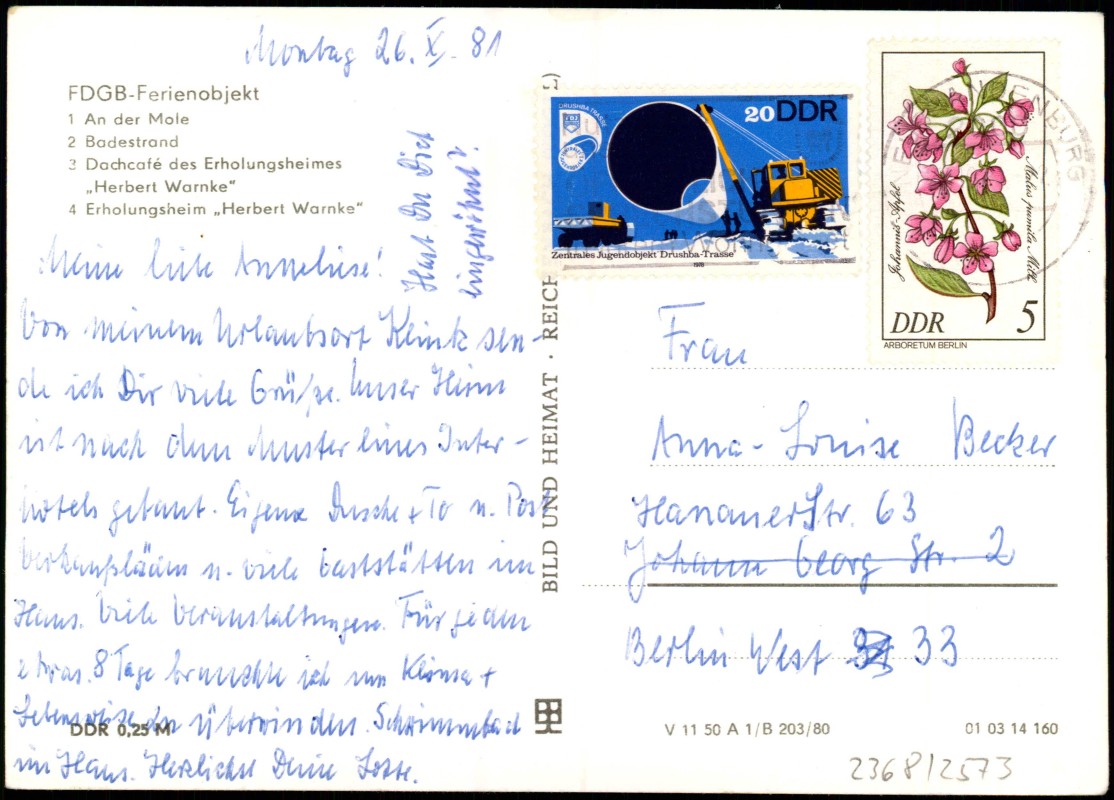 Montag 26. X. 81
FDGB-Ferienobjekt
1 An der Mole
2 Badestrand
3 Dachcafé des Erholungsheimes
„Herbert Warnke“
4 Erholungsheim „Herbert Warnke“
Hast Du Dich
eingewöhnt?
Meine liebe Anneliese!
Von meinem Urlaubsort Klink sen-
de ich Dir viele Grüße. Unser Heim
ist nach dem Muster eines Inter-
hotels gebaut. Eigene Dusche + To u. Post
Verkaufsläden u. viele Gaststätten im
Haus. Viele Veranstaltungen. Für jeden
etwas. 8 Tage brauchte ich um Klima +
Lebensweise zu überwinden. Schwimmbad
im Haus. Herzlichst Deine Lotte.
DDR 0,25 M
BILD UND HEIMAT · REICH
DRUSHBA-TRASSE
FDJ
20 DDR
Zentrales Jugendobjekt "Drushba-Trasse"
1978
Johannis-Apfel
Malus pumila Mill.
DDR 5
ARBORETUM BERLIN
NEUBRANDENBURG
Frau
Anna-Louise Becker
Hanauer Str. 63
Johann Georg Str. 2
Berlin West 33
V 11 50 A 1/B 203/80
01 03 14 160
2368/2573